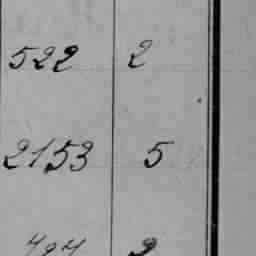 522 2
2153 5